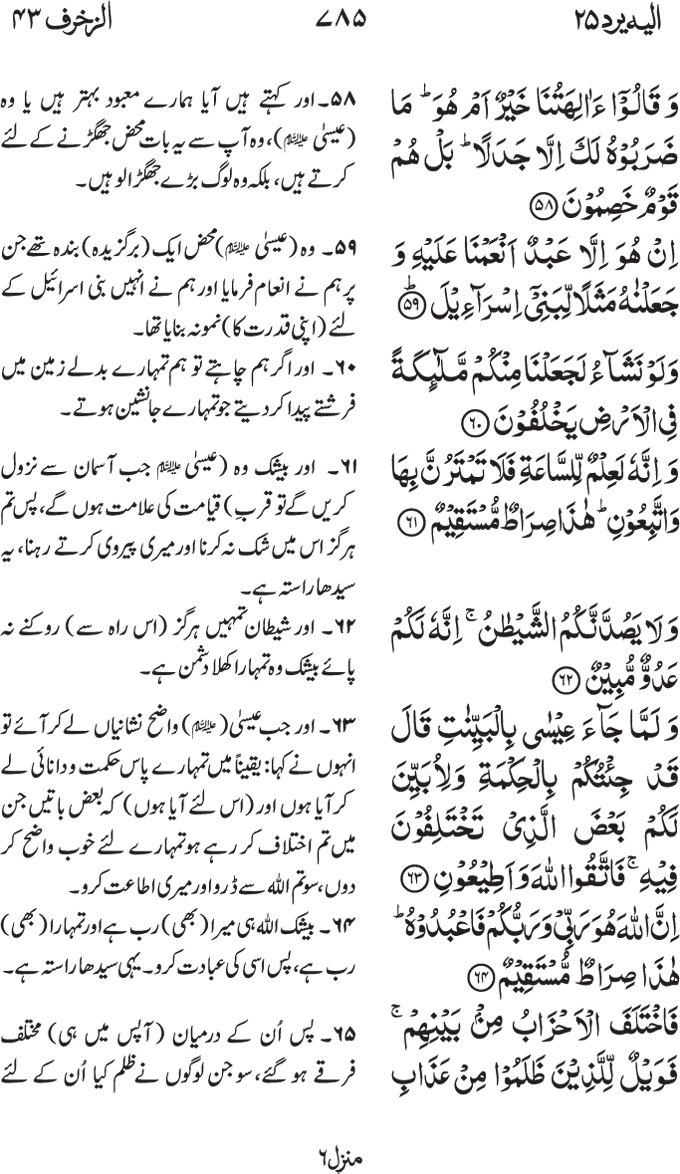 الیہ یرد ۲۵
۷۸۵
الزخرف ۴۳
وَ قَالُوْۤا ءَاٰلِهَتُنَا خَیْرٌ اَمْ هُوَ ؕ مَا
ضَرَبُوْهُ لَكَ اِلَّا جَدَلًا ؕ بَلْ هُمْ
قَوْمٌ خَصِمُوْنَ ﴿۵۸﴾
اِنْ هُوَ اِلَّا عَبْدٌ اَنْعَمْنَا عَلَیْهِ وَ
جَعَلْنٰهُ مَثَلًا لِّبَنِیْۤ اِسْرَآءِیْلَ ﴿ؕ۵۹﴾
وَلَوْ نَشَآءُ لَجَعَلْنَا مِنْكُمْ مَّلٰٓئِكَةً
فِی الْاَرْضِ یَخْلُفُوْنَ ﴿۶۰﴾
وَ اِنَّهٗ لَعِلْمٌ لِّلسَّاعَةِ فَلَا تَمْتَرُنَّ بِهَا
وَاتَّبِعُوْنِ ؕ هٰذَا صِرَاطٌ مُّسْتَقِیْمٌ ﴿۶۱﴾
وَلَا یَصُدَّنَّكُمُ الشَّیْطٰنُ ۚ اِنَّهٗ لَكُمْ
عَدُوٌّ مُّبِیْنٌ ﴿۶۲﴾
وَ لَمَّا جَآءَ عِیْسٰی بِالْبَیِّنٰتِ قَالَ
قَدْ جِئْتُكُمْ بِالْحِكْمَةِ وَ لِاُبَیِّنَ
لَكُمْ بَعْضَ الَّذِیْ تَخْتَلِفُوْنَ
فِیْهِ ۚ فَاتَّقُوا اللّٰهَ وَ اَطِیْعُوْنِ ﴿۶۳﴾
اِنَّ اللّٰهَ هُوَ رَبِّیْ وَ رَبُّكُمْ فَاعْبُدُوْهُ ؕ
هٰذَا صِرَاطٌ مُّسْتَقِیْمٌ ﴿۶۴﴾
فَاخْتَلَفَ الْاَحْزَابُ مِنْۢ بَیْنِهِمْ ۚ
فَوَیْلٌ لِّلَّذِیْنَ ظَلَمُوْا مِنْ عَذَابِ
۵۸۔ اور کہتے ہیں آیا ہمارے معبود بہتر ہیں یا وہ
(عیسیٰ علیہ السلام)، وہ آپ سے یہ بات محض جھگڑنے کے لئے
کرتے ہیں، بلکہ وہ لوگ بڑے جھگڑالو ہیں۔
۵۹۔ وہ (عیسیٰ علیہ السلام) محض ایک (برگزیدہ) بندہ تھے جن
پر ہم نے انعام فرمایا اور ہم نے انہیں بنی اسرائیل کے
لئے (اپنی قدرت کا) نمونہ بنایا تھا۔
۶۰۔ اور اگر ہم چاہتے تو ہم تمہارے بدلے زمین میں
فرشتے پیدا کر دیتے جو تمہارے جانشین ہوتے۔
۶۱۔ اور بیشک وہ (عیسیٰ علیہ السلام جب آسمان سے نزول
کریں گے تو قربِ) قیامت کی علامت ہوں گے، پس تم
ہرگز اس میں شک نہ کرنا اور میری پیروی کرتے رہنا، یہ
سیدھا راستہ ہے۔
۶۲۔ اور شیطان تمہیں ہرگز (اس راہ سے) روکنے نہ
پائے بیشک وہ تمہارا کھلا دشمن ہے۔
۶۳۔ اور جب عیسیٰ (علیہ السلام) واضح نشانیاں لے کر آئے تو
انہوں نے کہا: یقیناً میں تمہارے پاس حکمت و دانائی لے
کر آیا ہوں اور (اس لئے آیا ہوں) کہ بعض باتیں جن
میں تم اختلاف کر رہے ہو تمہارے لئے خوب واضح کر
دوں، سو تم اللہ سے ڈرو اور میری اطاعت کرو۔
۶۴۔ بیشک اللہ ہی میرا (بھی) رب ہے اور تمہارا (بھی)
رب ہے، پس اسی کی عبادت کرو۔ یہی سیدھا راستہ ہے۔
۶۵۔ پس اُن کے درمیان (آپس میں ہی) مختلف
فرقے ہو گئے، سو جن لوگوں نے ظلم کیا اُن کے لئے
منزل ۶